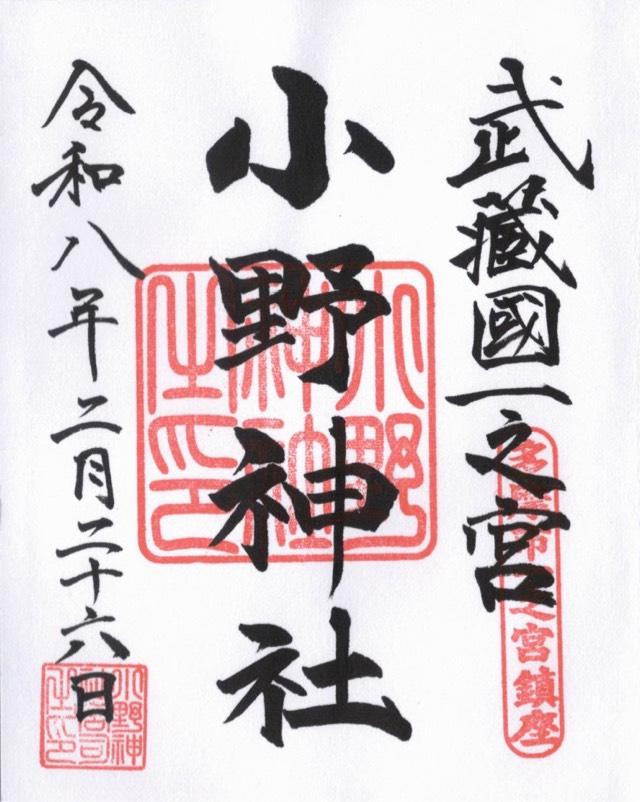 武藏國一之宮
多摩市一之宮鎮座
小野神社
小野神社之印
令和八年二月二十六日
小野神社宮司之印